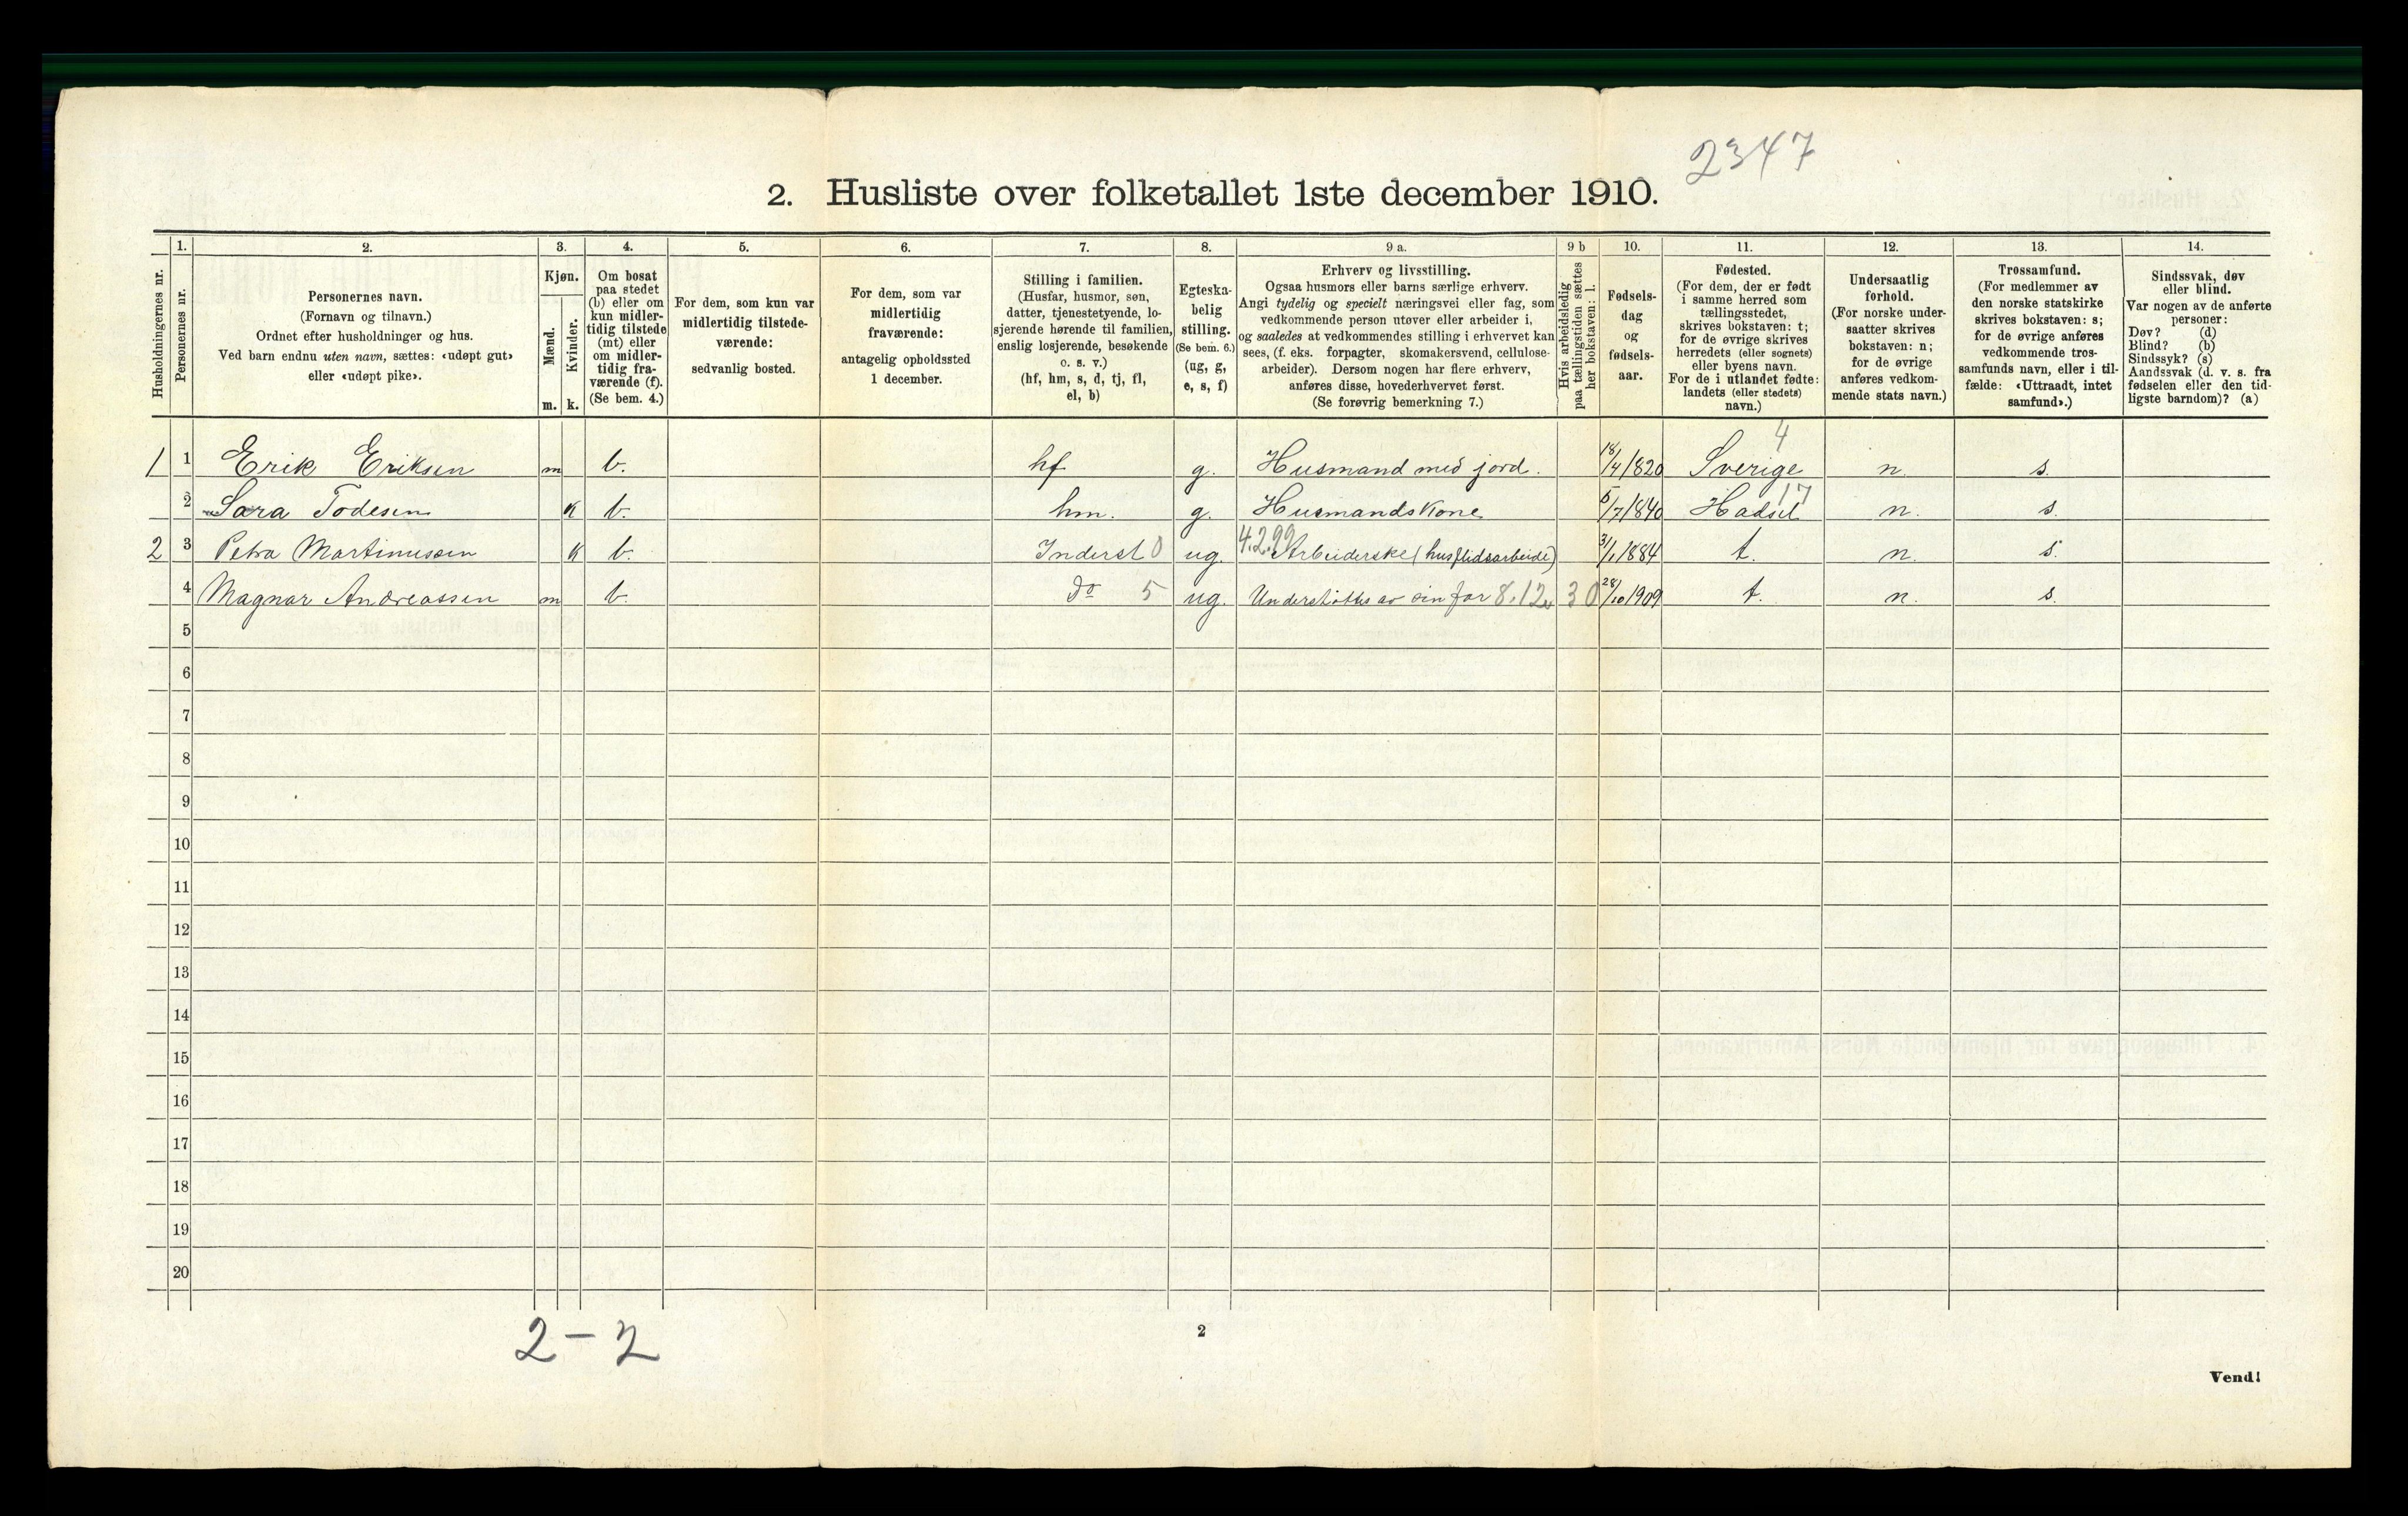 2347
2. Husliste over folketallet 1ste december 1910.
1. 2. 3. 4. 5. 6. 7. 8. 9 a. 9 b 10. 11. 12. 13. 14.
Husholdningernes nr.
Personernes nr.
Personernes navn.
(Fornavn og tilnavn.)
Ordnet efter husholdninger og hus.
Ved barn endnu uten navn, sættes: «udøpt gut»
eller «udøpt pike».
Kjøn.
Mænd.
Kvinder.
m. k.
Om bosat
paa stedet
(b) eller om
kun midler-
tidig tilstede
(mt) eller
om midler-
tidig fra-
værende (f).
(Se bem. 4.)
For dem, som kun var
midlertidig tilstede-
værende:
sedvanlig bosted.
For dem, som var
midlertidig
fraværende:
antagelig opholdssted
1 december.
Stilling i familien.
(Husfar, husmor, søn,
datter, tjenestetyende, lo-
sjerende hørende til familien,
enslig losjerende, besøkende
o. s. v.)
(hf, hm, s, d, tj, fl,
el, b)
Egteska-
belig
stilling.
(Se bem. 6.)
(ug, g,
e, s, f)
Erhverv og livsstilling.
Ogsaa husmors eller barns særlige erhverv.
Angi tydelig og specielt næringsvei eller fag, som
vedkommende person utøver eller arbeider i,
og saaledes at vedkommendes stilling i erhvervet kan
sees, (f. eks. forpagter, skomakersvend, cellulose-
arbeider). Dersom nogen har flere erhverv,
anføres disse, hovederhvervet først.
(Se forøvrig bemerkning 7.)
Hvis arbeidsledig
paa tællingstiden sættes
her bokstaven: l.
Fødsels-
dag
og
fødsels-
aar.
Fødested.
(For dem, der er født
i samme herred som
tællingsstedet,
skrives bokstaven: t;
for de øvrige skrives
herredets (eller sognets)
eller byens navn.
For de i utlandet fødte:
landets (eller stedets)
navn.)
Undersaatlig
forhold.
(For norske under-
saatter skrives
bokstaven: n;
for de øvrige
anføres vedkom-
mende stats navn.)
Trossamfund.
(For medlemmer av
den norske statskirke
skrives bokstaven: s;
for de øvrige anføres
vedkommende tros-
samfunds navn, eller i til-
fælde: «Uttraadt, intet
samfund».)
Sindssvak, døv
eller blind.
Var nogen av de anførte
personer:
Døv? (d)
Blind? (b)
Sindssyk? (s)
Aandssvak (d. v. s. fra
fødselen eller den tid-
ligste barndom)? (a)
4
1 1 Erik Eriksen m b. hf g. Husmand med jord. 18/4 1820 Sverige n. s.
17
2 Sara Todesen k b. hm. g. Husmandskone 5/7 1840 Hadsel n. s.
2 3 Petra Martinussen k b. Inderst 0 ug. 4.2.99 Arbeiderske (husflidsarbeide) 31/1 1884 t. n. s.
4 Magnar Andreassen m b. do 5 ug. Understøttes av sin far 8.12. 30 28/10 1909 t. n. s.
5
6
7
8
9
10
11
12
13
14
15
16
17
18
19
20
2 – 2
2
Vend!